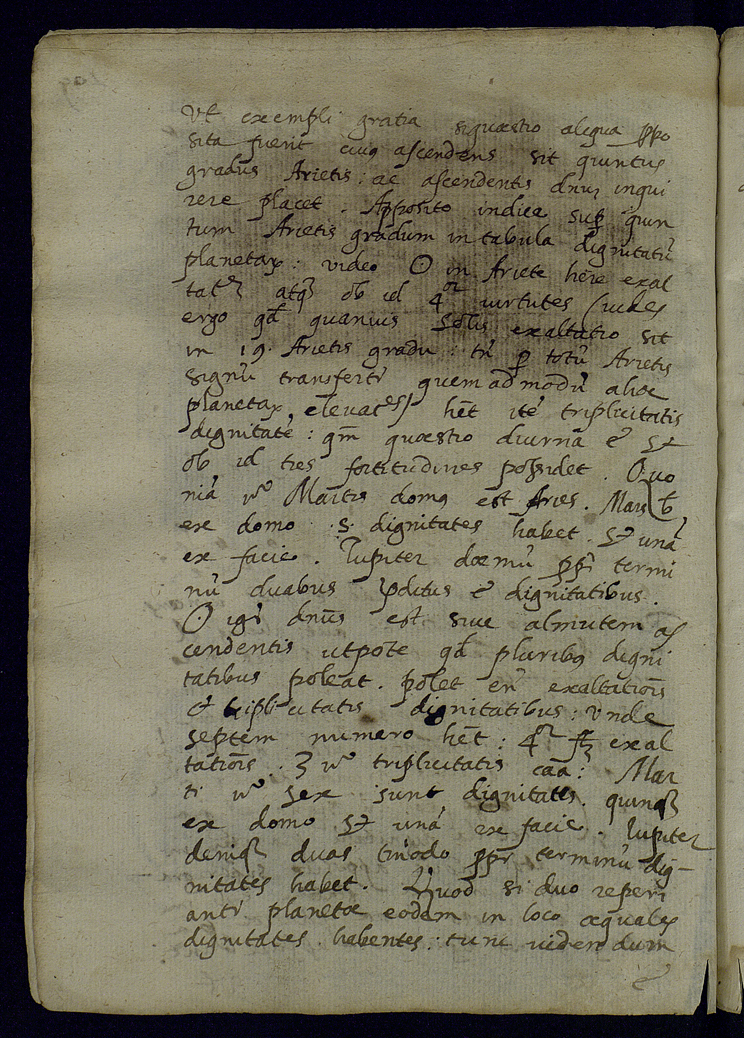 Vt exempli gratia si quæstio aliqua ppo
sita fuerit cuiꝯ ascendens sit quintus
gradus Arietis: ac ascendentis dñus inqui
rere placet. Apposito indice sup quin
tum Arietis gradum in tabula dignitatũ
planetaꝝ: video ☉ in Ariete hẽre exal
tatẽ atqꝫ ob id 4or virtutes (vides
ergo qđ quanvis Solis exaltatio sit
in 19. Arietis gradu: tñ ꝑ totũ Arietis
signũ transfertr quem ad modũ aliæ
planetaꝝ elevatões) hẽt itẽ triplicitatis
dignitatẽ: qm̃ quæstio diurna ẽ et
ob id tres fortitudines possidet. Quo
niã vº Martis domꝯ est Aries. Mars
ex domo .5. dignitates habet. et unã
ex facie. Iupiter dæmũ ppr̃ termi
nũ duabus pditus ẽ dignitatibus.
☉ igr̃ dnũs est sive almutem as
cendentis utpote qđ pluribꝯ digni
tatibus poleat. polet em̃ exaltatiõis
et triplicitatis dignitatibus: unde
septem numero hẽt: 4or exal
tatiõis. 3 vº triplicitatis cãã: Mar
ti vº sex sunt dignitates. quinqꝫ
ex domo et unã ex facie. Iupiter
deniqꝫ duas tm̃odo ppr̃ terminũ dig-
nitates habet. Quod si duo reperi
antr planetæ eodem in loco æquales
dignitates habentes: tunc videndum
ẽ